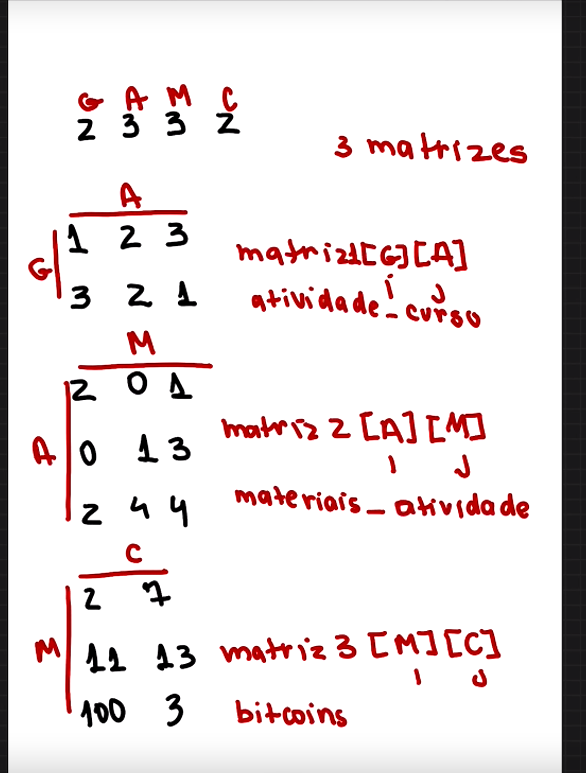 G A M C
2 3 3 2
3 matrizes
A
G
1 2 3
3 2 1
matriz1[G][A]
i j
atividade_curso
M
A
2 0 1
0 1 3
2 4 4
matriz 2 [A] [M]
i j
materiais_atividade
C
M
2 7
11 13
100 3
matriz 3 [M] [C]
i j
bitcoins